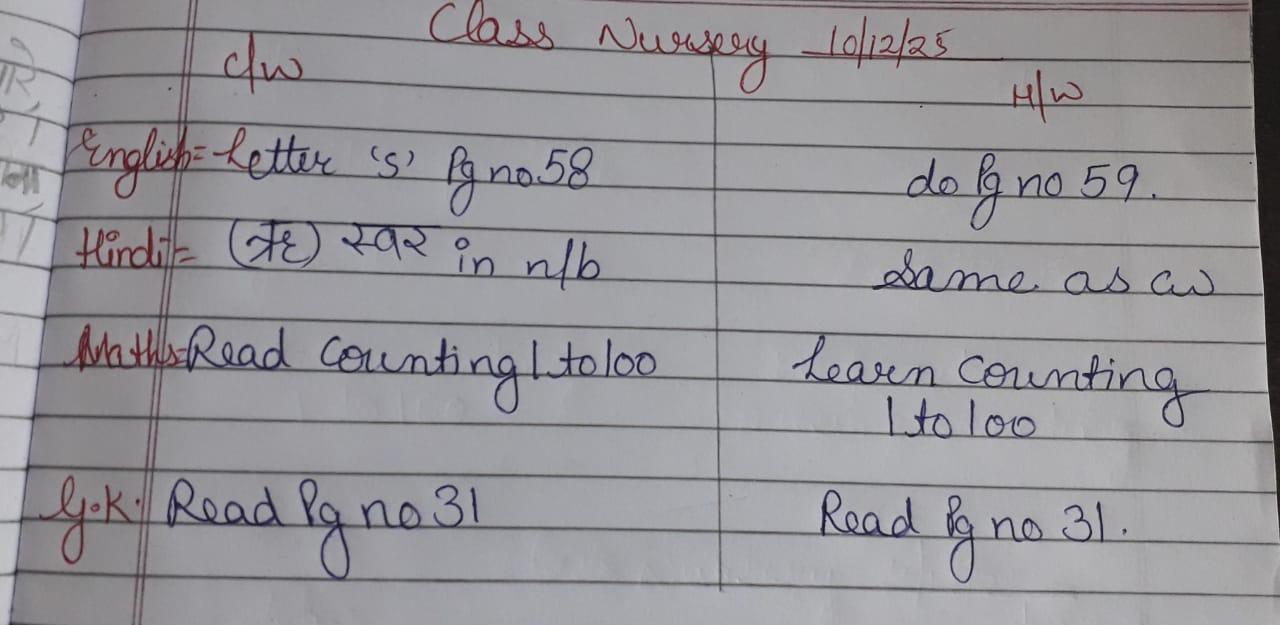 Class Nursery 10/12/25
c/w H/W
English = Letter 's' Pg no 58 do Pg no 59.
Hindi = (ऋ) स्वर in n/b Same as cw
Maths = Read Counting 1 to 100 Learn Counting
1 to 100
G.K. Read Pg no 31 Read Pg no 31.